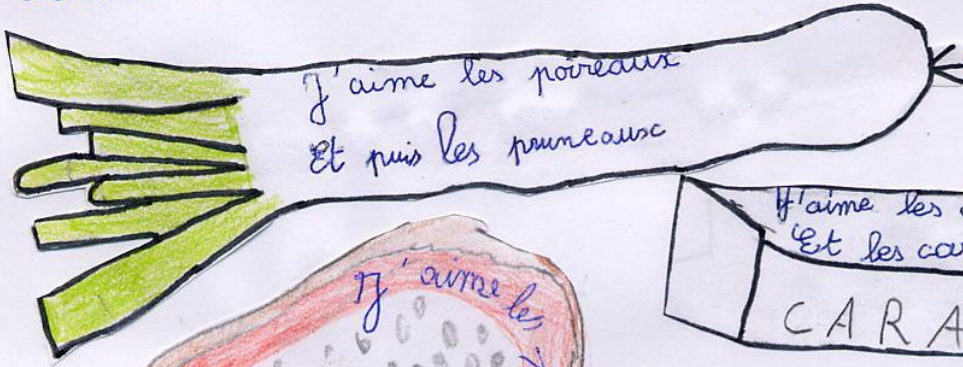 J'aime les poireaux
Et puis les pruneaux
J'aime les
Et les
J'aime les